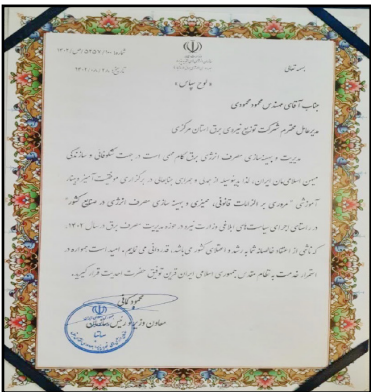 بسمه تعالی
تاریخ: ۱۴۰۲/۰۸/۲۰
«لوح سپاس»
جناب آقای مهندس محمود محمودی
مدیرعامل محترم شرکت توزیع نیروی برق استان مرکزی
مدیریت و بهینه‌سازی مصرف انرژی برق گام مهمی است در جهت شکوفائی و سازندگی
میهن اسلامی‌مان ایران، لذا بدینوسیله از همدلی و همراهی جنابعالی در برگزاری موفقیت آمیز وبینار
آموزشی "مروری بر الزامات قانونی، ممیزی و بهینه سازی مصرف انرژی در صنایع کشور"
در راستای اجرای سیاست‌های ابلاغی وزارت نیرو در حوزه مدیریت مصرف برق در سال ۱۴۰۲،
که ناشی از اعتقاد خالصانه شما به رشد و اعتلای کشور می‌باشد، قدردانی می‌نمایم. امید است همواره در
استمرار خدمت به نظام مقدس جمهوری اسلامی ایران قرین توفیق حضرت احدیت قرار گیرید.
محمود کافی
معاون وزیر و رئیس سازمان